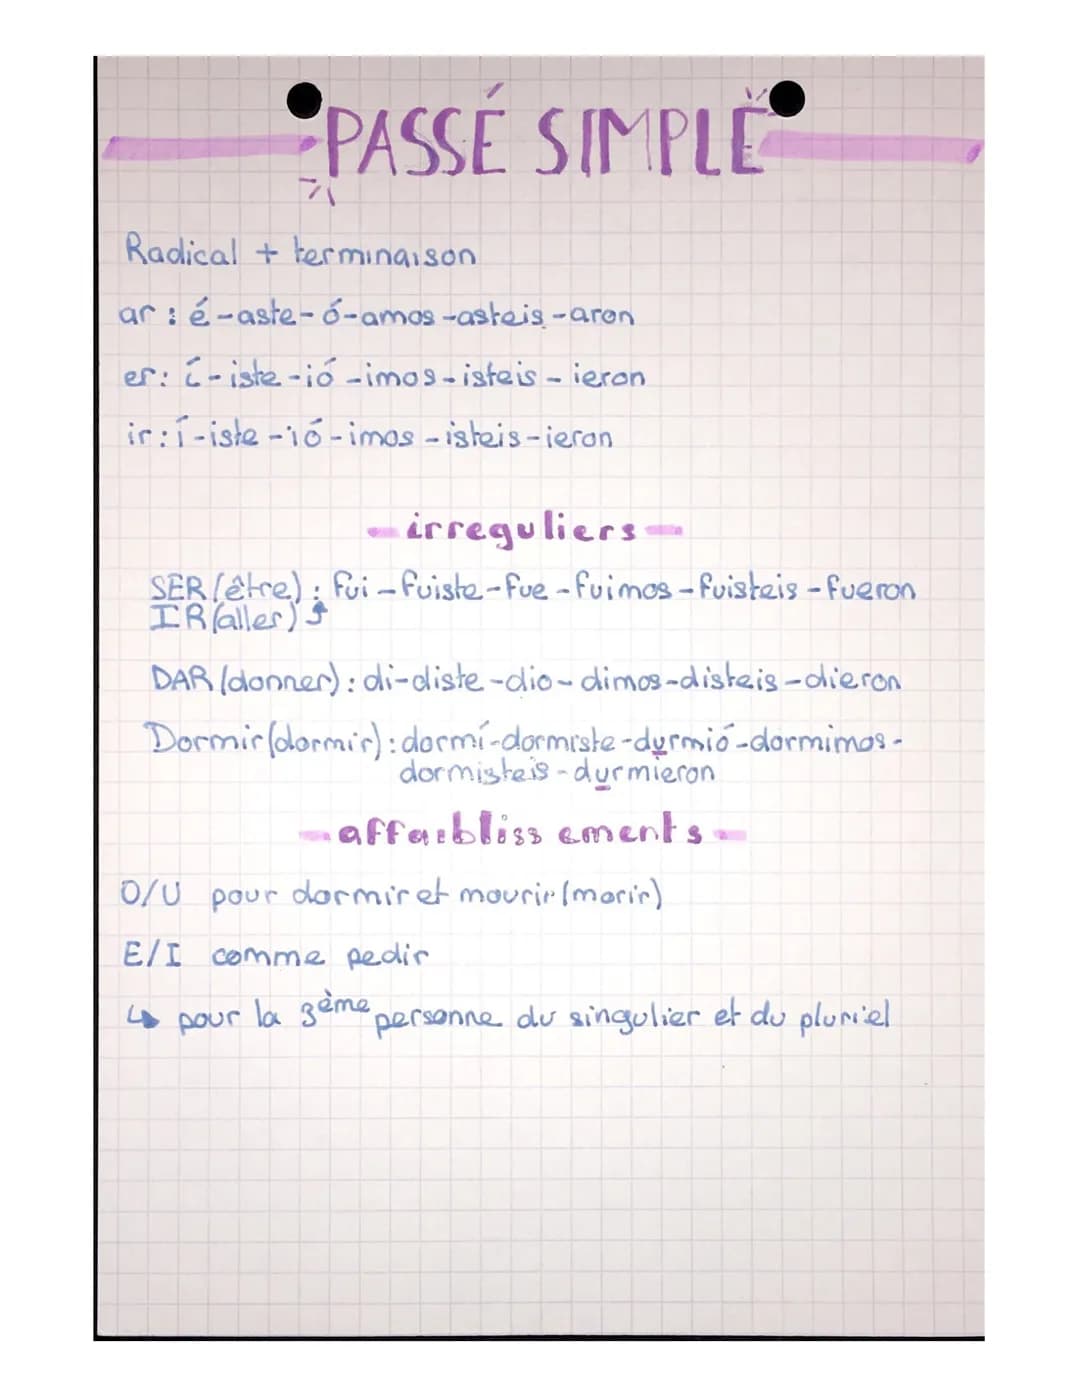 PASSÉ SIMPLE
Radical + terminaison
ar : é - aste - ó - amos - asteis - aron
er : í - iste - ió - imos - isteis - ieron
ir : í - iste - ió - imos - isteis - ieron
- irreguliers -
SER (être) : fui - fuiste - fue - fuimos - fuisteis - fueron
IR (aller) ⤴
DAR (donner) : di - diste - dio - dimos - disteis - dieron
Dormir (dormir) : dormí - dormiste - durmió - dormimos -
dormisteis - durmieron
- affaiblissements -
O/U pour dormir et mourir (morir)
E/I comme pedir
↳ pour la 3ème personne du singulier et du pluriel